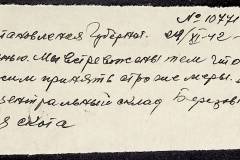 № 10771
становления Губерни.
24/XI-42
нью. Мы встревожены тем что
сим принять строже меры.
центральный склад Березов
я скота